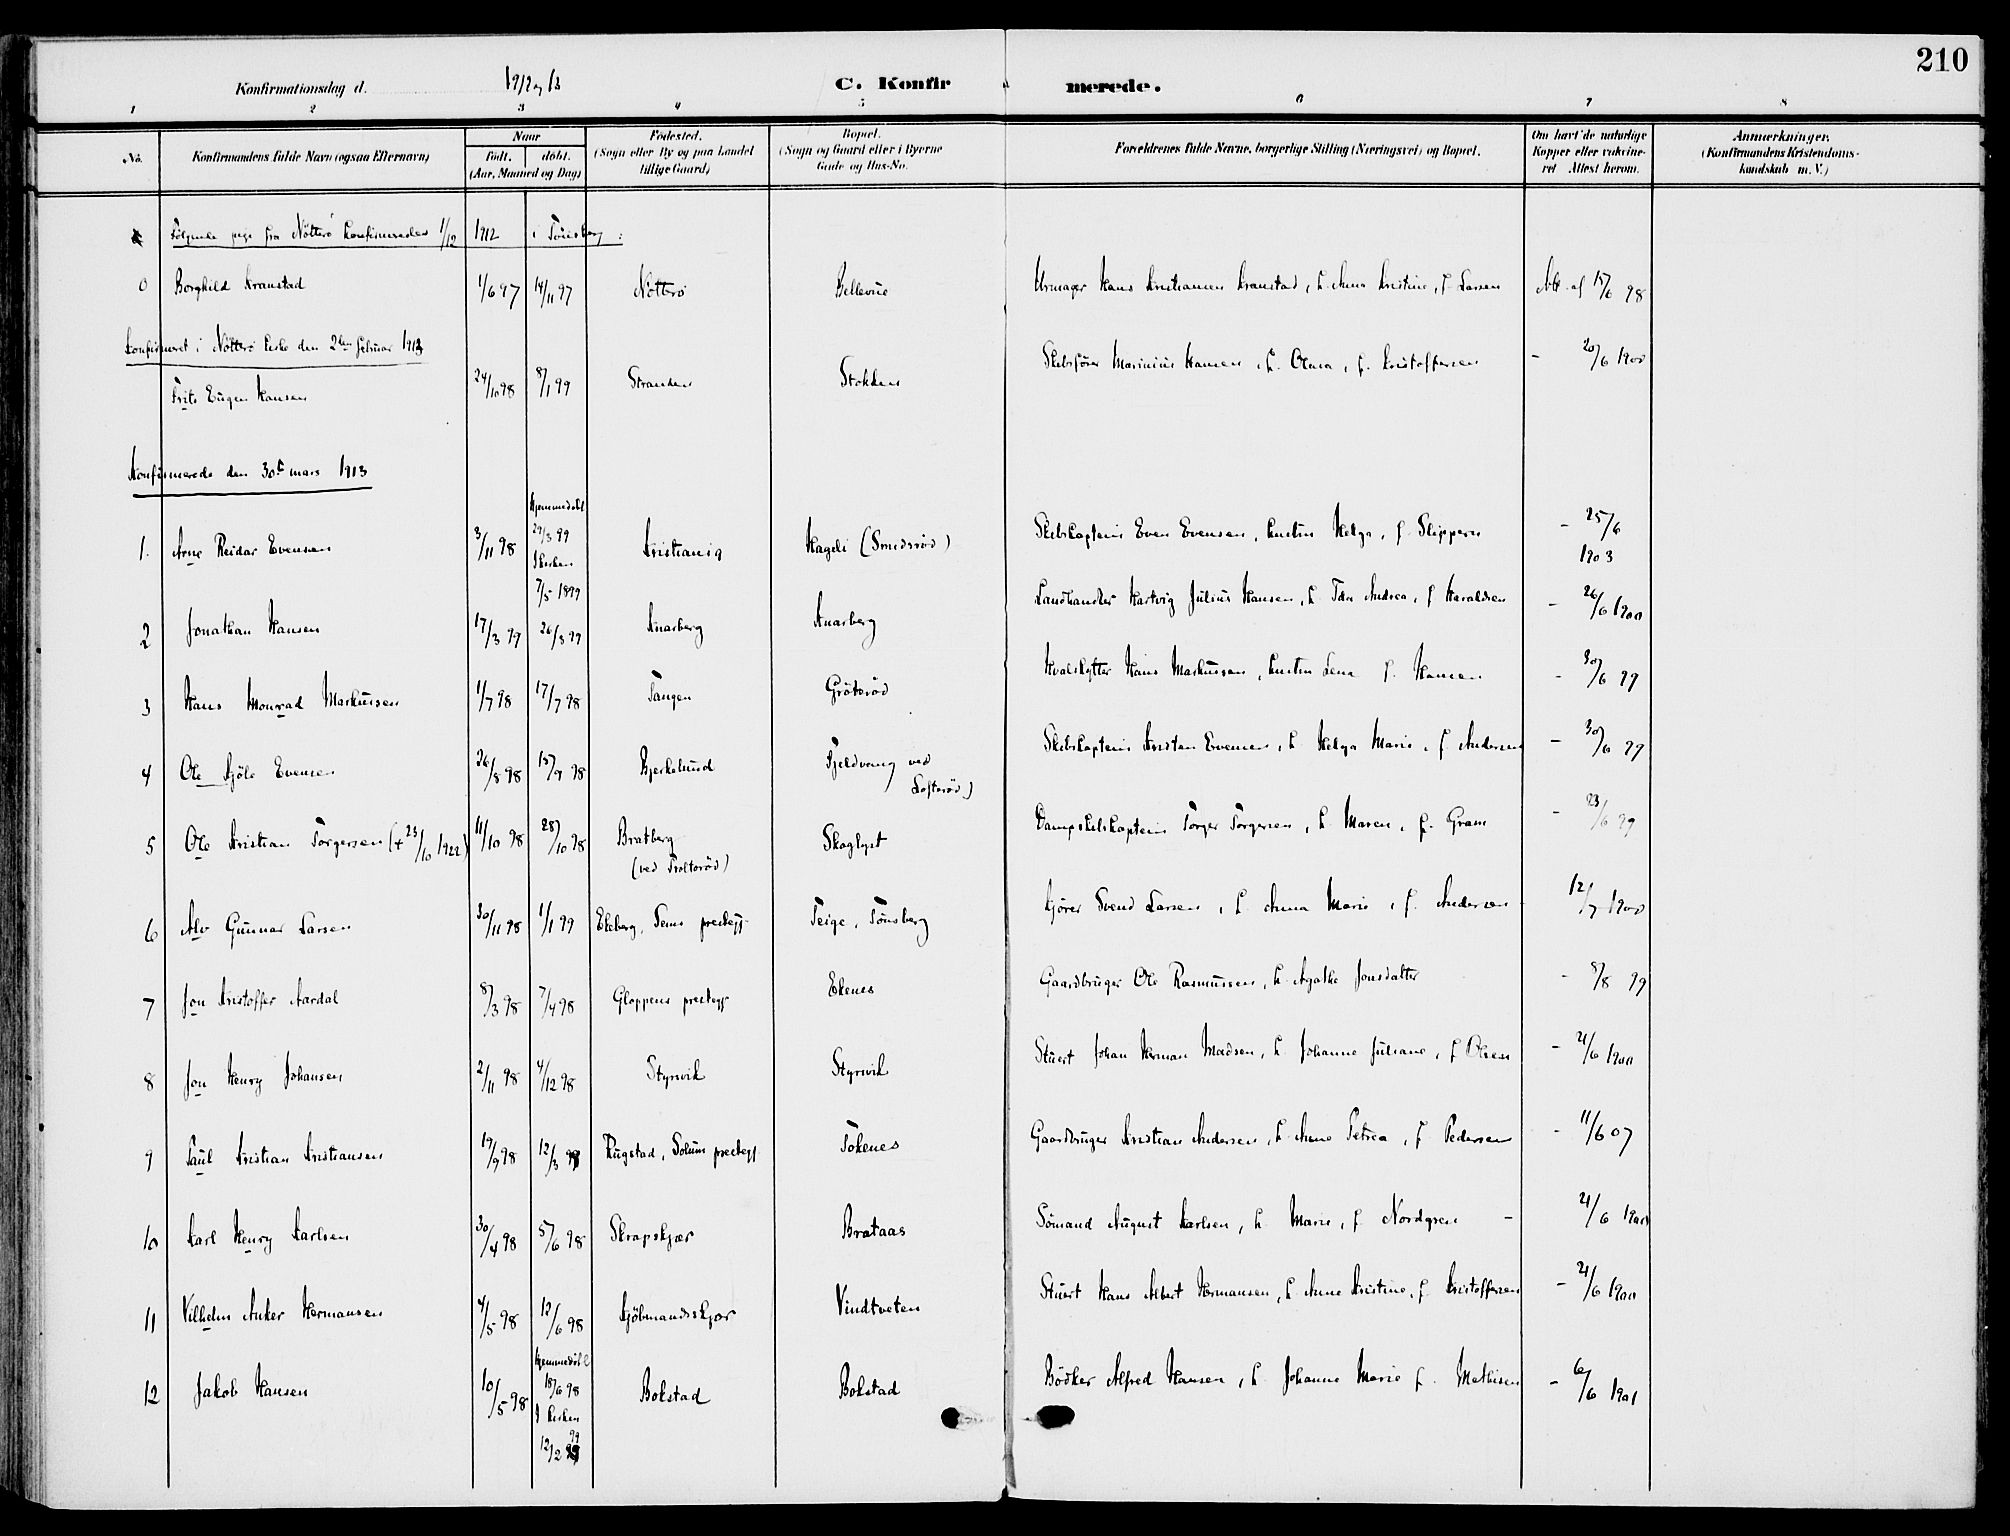 210
Konfirmationsdag d. 1912 og 13 C. Konfirmerede.
1 2 3 4 5 6 7 8
No. Konfirmandens fulde Navn (ogsaa Efternavn) Naar født. døbt. (Aar, Maaned og Dag) Fødested. (Sogn eller By og paa Landet tillige Gaard) Bopæl. (Sogn og Gaard eller i Byerne Gade og Hus-No. Forældrenes fulde Navne, borgerlige Stilling (Næringsvei) og Bopæl. Om havt de naturlige Kopper eller vakcineret Attest herom. Anmærkninger. (Konfirmandens Kristendomskundskab m. V.)
Følgende pige fra Nötterö konfirmeredes 1/12 1912 i Tönsberg:
0 Borghild Kranstad 1/6 97 14/11 97 Nötterö Bellevue Urmager Hans Kristiansen Kranstad, h. Anna Kristine, f. Larsen Att. af 15/6 98
Konfirmeret i Nötterö kirke den 2den februar 1913
Frits Eugen Hansen 24/10 98 8/1 99 Stranden Stokken Skibsförer Marinius Hansen, h. Olava, f. Kristoffersen - 20/6 1900
Konfirmerede den 30te mars 1913
1. Arne Reidar Evensen 3/11 98 Hjemmedöbt 29/3 99 I kirken 7/5 1899 Kristiania Hageli (Smidsröd) Skibskaptein Even Evensen, hustru Helga, f. Slippern - 25/6 1903
2 Jonathan Hansen 17/3 99 26/3 99 Knarberg Knarberg Landhandler Hartvig Julius Hansen, h. Ida Andrea, f. Haraldsen - 26/6 1900
3 Hans Monrad Markussen 1/7 98 17/7 98 Tangen Gröteröd Hvalskytter Hans Markussen, hustru Lena f. Hansen - 30/6 99
4 Ole Kjöle Evensen 26/8 98 15/9 98 Bjerkelund Fjeldvang ved Lofteröd) Skibskaptein Kristen Evensen, h. Helga Marie, f. Andersen - 30/6 99
5 Ole Kristian Torgersen (+ 23/10 1922) 11/10 98 28/10 98 Bratberg (ved Trolteröd) Skoglyst Dampskibskaptein Torger Torgersen, h. Maren, f. Gram - 23/6 99
6 Alv Gunnar Larsen 30/11 98 1/1 99 Ekeberg, Sems prestegj. Teige, Tönsberg Kjörer Svend Larsen, h. Anna Marie, f. Andersen - 12/7 1900
7 Jon Kristoffer Aardal 8/3 98 7/4 98 Gloppens prestegj. Ekenes Gaardbruger Ole Rasmussen, h. Agathe Jonsdatter - 8/8 99
8 Jon Henry Johansen 2/11 98 4/12 98 Styrvik Styrvik Stuert Johan Herman Madsen, h. Johanne Juliane, f. Olsen - 21/6 1900
9 Paul Kristian Kristiansen 19/9 98 12/3 99 Rugstad, Solum prestegj. Tokenes Gaardbruger Kristian Andersen, h. Anne Petrea, f. Pedersen - 11/6 07
10 Karl Henry Karlsen 30/4 98 5/6 98 Skrapskjær Brataas Sömand August Karlsen, h. Marie, f. Nordgren - 21/6 1900
11 Vilhelm Anker Hermansen 4/5 98 12/6 98 Kjöbmandsskjær Vindtveten Stuert Hans Albert Hermansen, h. Anne Kristine, f. Kristoffersen - 21/6 1900
12 Jakob Hansen 10/5 98 Hjemmedöbt 18/6 98 I kirken 12/2 99 Bokstad Bokstad Bödker Alfred Hansen, h. Johanne Marie f. Mathisen - 6/6 1901